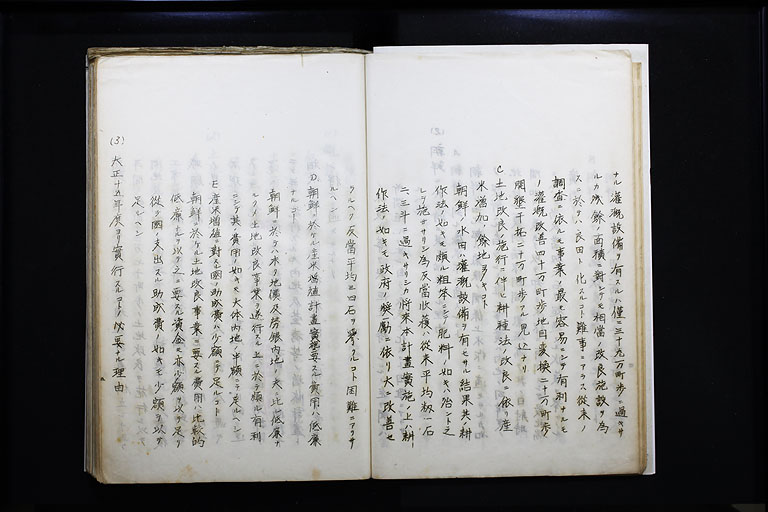 ナル灌漑設備ヲ有スルハ僅ニ三十九万町歩ニ過キサ
ルカ残餘ノ面積ニ對シテモ相當ノ改良施設ヲ為
スニ於テハ良田ト化スルコト難事ニアラス從来ノ
調査ニ依ルモ事業ノ最モ容易ニシテ有利ナルモ
ノ灌漑改善四十万町歩地目変換二十万町歩
開墾干拓二十万町歩ノ見込ナリ
C 土地改良ノ施行ニ伴ヒ耕種法ノ改良ニ依リ産
米増加ノ餘地多キコト
朝鮮ノ水田ハ灌漑設備ヲ有セサル結果其ノ耕
作法ノ如キモ頗ル粗笨ニシテ肥料ノ如キ殆ント之
レヲ施サヽリシ為反當收穫ハ從来平均籾一石
二、三斗ニ過キサリシカ將来本計畫實施ノ上ハ耕
作法ノ如キモ政府ノ奨勵ニ依リ大ニ改善セ
ラルヘク反當平均二四石ヲ ルコト困難ニアラサ
ルヘシ
D. 朝鮮ニ於ケル産米増殖計畫實施ニ要スル費用ハ低廉
ナルコト
朝鮮ニ於テハ未タ地價及勞銀内地ノ夫ニ比シ低廉ナ
ルタメ土地改良事業ヲ遂行スル上ニ於テ頗ル有利
ニシテ其ノ費用ノ如キモ大体内地ノ半額ニテ足ルヘシ
E 産米増殖ニ對スル國ノ助成費ハ少額ニテ足ルコト
朝鮮ニ於ケル土地改良事業ニ要スル費用ハ比較的
低廉ナルヲ以テ之ニ要スル資金モ亦少額ヲ以テ足リ
從テ國ノ支出スル助成費ノ如キモ少額ヲ以テ
足ルヘシ
(3) 大正十五年度ヨリ實行スルコトノ必要ナル理由